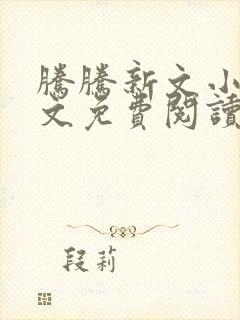 騰騰新文小
文免費閱讀
段莉